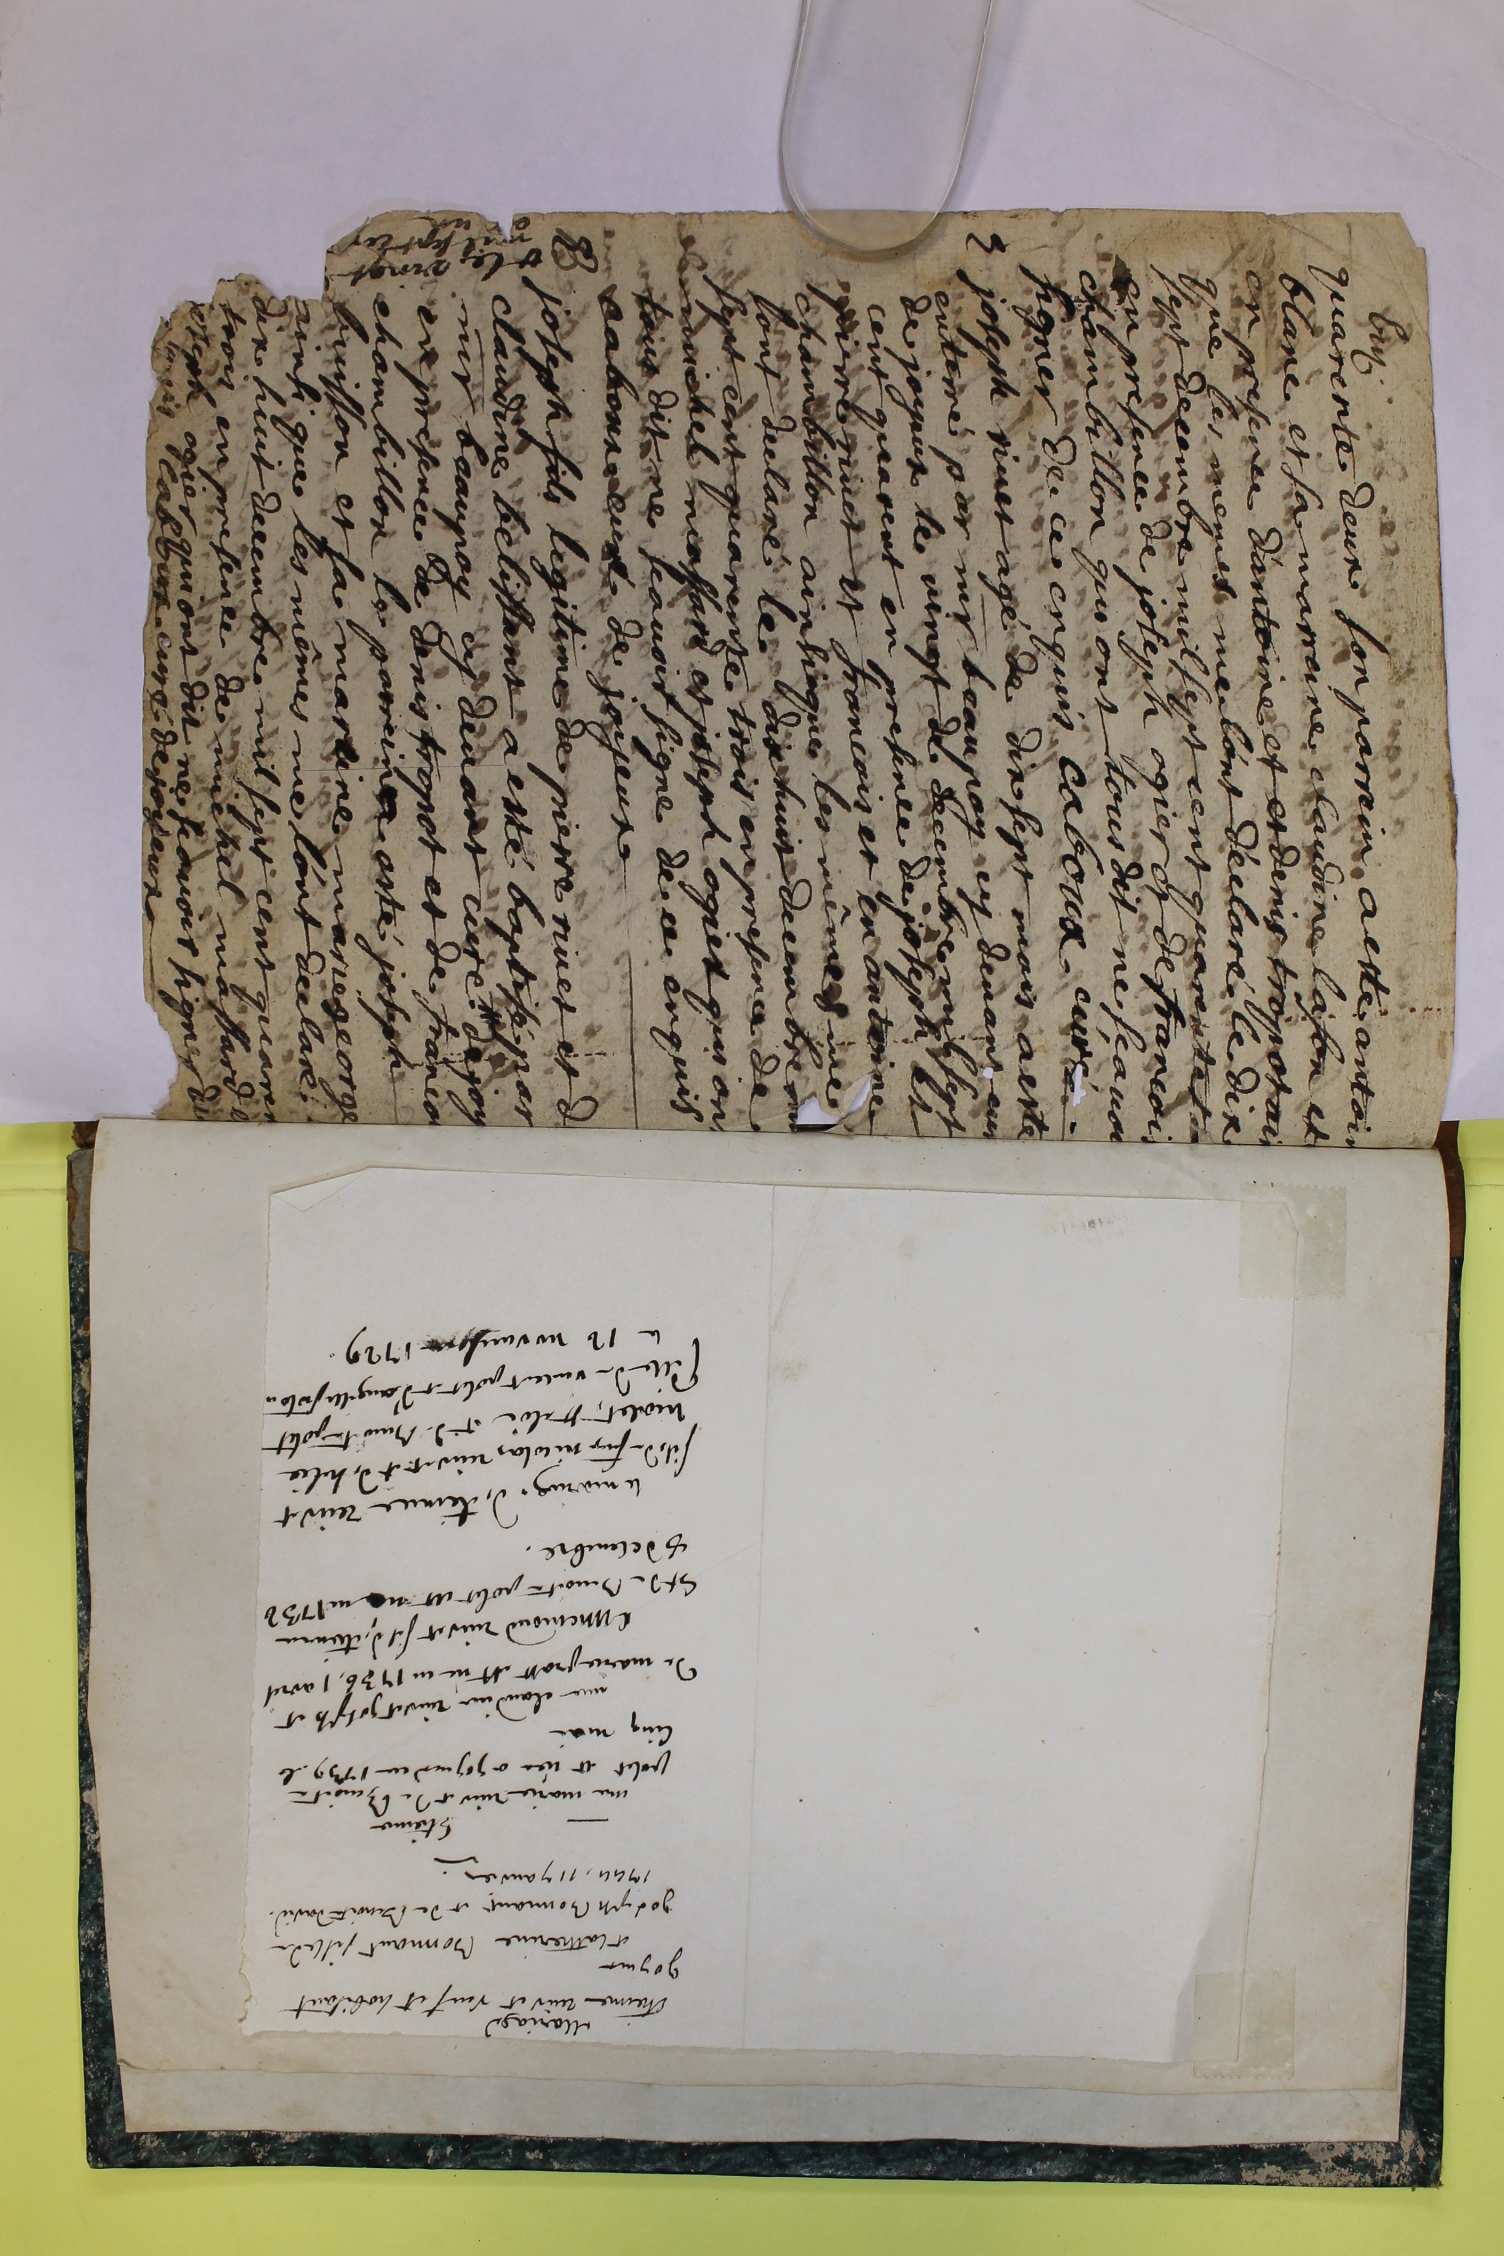 quarente deux son parrein a este antoi
blanc et sa marreine claudine lafon et
en presence dantoine et et denis tropotai
que les memes me lont déclaré le dix
sept decembre mil sept cent quarente
en presence de joseph ogier & de francois
chambillon qui ont tous dit ne scavoir
signer de ce enquis Caboux curé
joseph rivet agé de dix sept mois a este
enterré par mr beaupoy cy devant cur
de joyeux le vingt de decembre mil sept
cent quarent en presence de joseph et
pierre rivet et francois et en antoine
chambillon ainsi que les mêmes me
lont declaré le dix huit decembre m
sept cent quarente trois en presence de
michel massard et joseph ogier qui on
tous dit ne scavoir signe de ce enquis
caboux curé de joyeux
B joseph fils legitime de pierre rivet et d
claudine belissant a esté baptisé par
mr beaupoy cy devant curé de joy
en presence de denis tropot et de franco
chambillon le parrein a esté joseph
buisson et sa marreine marie george
ainsi que les mêmes me lont declaré
dix huit decembre mil sept cent quaren
trois en presence de michel massard e
joseph ogier qui ont dit ne scavoir signer de
Caboux curé de joyeux
le vingt
mil sept cen

Mariage
étienne rivet veuf et habitant
joyeux
et catherine Bornant fille de
joseph Bornant et de Benoite david.
1744, 11 janvier.
Etienne
une marie rivet de Benoite
polet est née a joyeux en 1739, le
cinq mai
une claudine rivet joseph et
de marie gratt est née en 1736, 1 avril
Ennemond rivet fils d'étienne
Et de Benoite polet est né en 1732
5 decembre.
le mariage d'étienne rivet
fils de feu nicolas rivet et d'helie
fille de vincent polet et d'
le 12 novembre 1729.